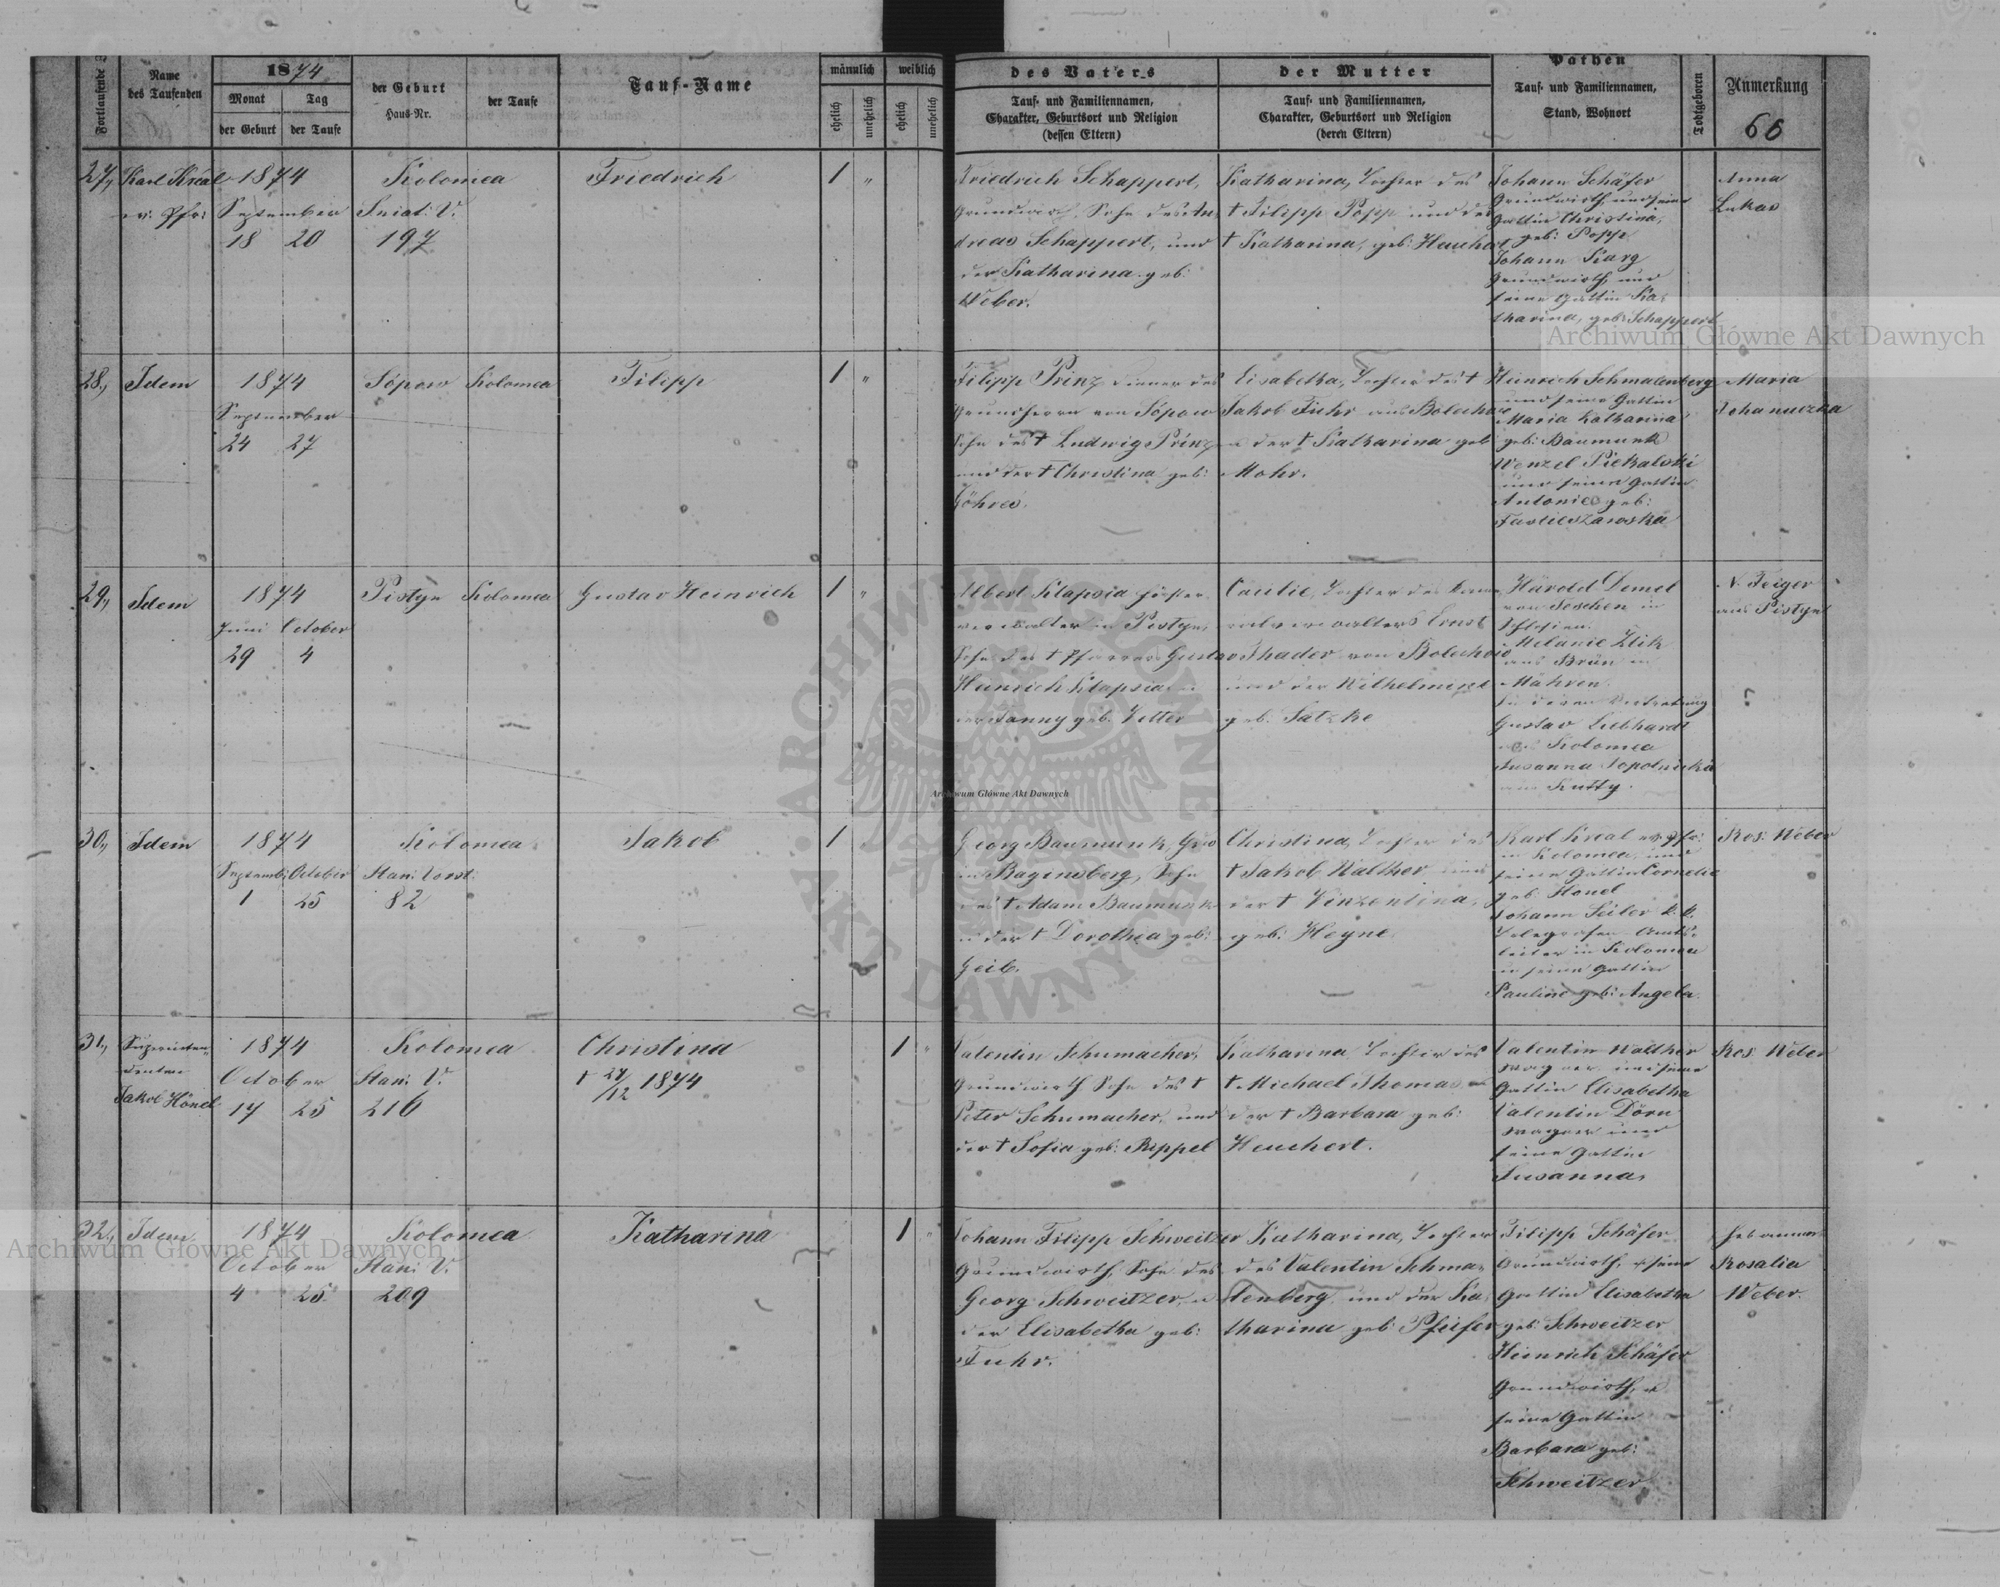 Fortlaufende
Name
des Taufenden
1874
Monat
Tag
der Geburt
der Taufe
der Geburt
Haus-Nr.
der Taufe
Tauf-Name
männlich
weiblich
ehelich
unehelich
ehelich
unehelich
des Vaters
Tauf- und Familiennamen,
Charakter, Geburtsort und Religion
(dessen Eltern)
der Mutter
Tauf- und Familiennamen,
Charakter, Geburtsort und Religion
(deren Eltern)
Pathen
Tauf- und Familiennamen,
Stand, Wohnort
Todtgeboren
Anmerkung
66
27,
Karl Kreal
ev: Pfr:
1874
September
18 20
Kolomea
Sniat: V.
197
Friedrich
1 "
Friedrich Schappert,
Grundwirth, Sohn des An
dreas Schappert, und
der Katharina geb:
Weber.
Katharina, Tochter des
† Filipp Popp und der
† Katharina, geb: Heuchert
Johann Schäfer
Grundwirth und seine
Gattin Christina,
geb: Popp
Johann Karg
Grundwirth, und
seine Gattin Ka-
tharina, geb: Schappert
Anna
Lukas
28,
Idem
1874
September
24 27
Sópow
Kolomea
Filipp
1 "
Filipp Prinz Diener des
Grundherrn von Sópow
Sohn des † Ludwig Prinz
und der † Christina geb:
Göhres.
Elisabetha, Tochter des †
Jakob Fuhr aus Bolechow
u der † Katharina geb
Mohr.
Heinrich Schmalenberg
und seine Gattin
Maria Katharina
geb: Baumunk
Wenzel Piekalski
und seine Gattin
Antonie geb:
Maria
Johanuczka
29,
Idem
1874
Juni October
29 4
Pistyn
Kolomea
Gustav Heinrich
1 "
Albert Klapsia Förster
verwalter in Pistyn,
Sohn des † Pfarrers Gustav
Heinrich Klapsia u
der Fanny geb. Vetter
Cäcilie, Tochter des
Ernst
Thader von Bolechow
und der Wilhelmine
geb. Satzke
Harold Demel
von Teschen in
Schlesien.
Melanie Zlik
aus Brün in
Mähren.
in deren Vertretung
Gustav Liebhardt
aus Kolomea
Susanna Topolnicka
aus Kutty.
N. Feiger
aus Pistyn
30,
Idem
1874
Septemb: October
1 25
Kolomea
Stan: Vorst:
82
Jakob
1
Georg Baumunk,
in Baginsberg, Sohn
des † Adam Baumunk
u der † Dorothea geb:
Geib.
Christina, Tochter des
† Jakob Walther und
der † Vinzentina,
geb: Heyne.
Karl Kreal ev: Pfr:
in Kolomea, und
seine Gattin Cornelie
geb: Hönel
Johann Seiler k. k.
Telegrafen- Amts-
leiter in Kolomea
u seine Gattin
Pauline geb: Angela.
Ros: Weber
31,
Superinten-
denten
Jakob Hönel
1874
October
17 25
Kolomea
Stan: V.
216
Christina
† 27/12 1874
1 "
Valentin Schumacher,
Grundwirth Sohn des †
Peter Schumacher, und
der † Sofia geb: Rippel
Katharina, Tochter des
† Michael Thomas, und
der † Barbara geb:
Heuchert.
Valentin Walther
Wagner und seine
Gattin Elisabetha
Valentin Dörn
Wagner und
seine Gattin
Susanna,
Ros: Weber
32,
Idem
1874
October
4 25
Kolomea
Stan: V.
209
Katharina
1 "
Johann Filipp Schweitzer
Grundwirth, Sohn des
Georg Schweitzer, u
der Elisabetha geb:
Fuhr.
Katharina, Tochter
des Valentin Schma-
lenberg und der Ka-
tharina geb: Pfeifer
Filipp Schäfer
Grundwirth, u seine
Gattin Elisabetha
geb: Schweitzer
Heinrich Schäfer
Grundwirth, u
seine Gattin
Barbara geb:
Schweitzer.
Hebamme
Rosalia
Weber.
Archiwum Główne Akt Dawnych
Archiwum Główne Akt Dawnych
Archiwum Główne Akt Dawnych
ARCHIWUM GŁÓWNE AKT DAWNYCH